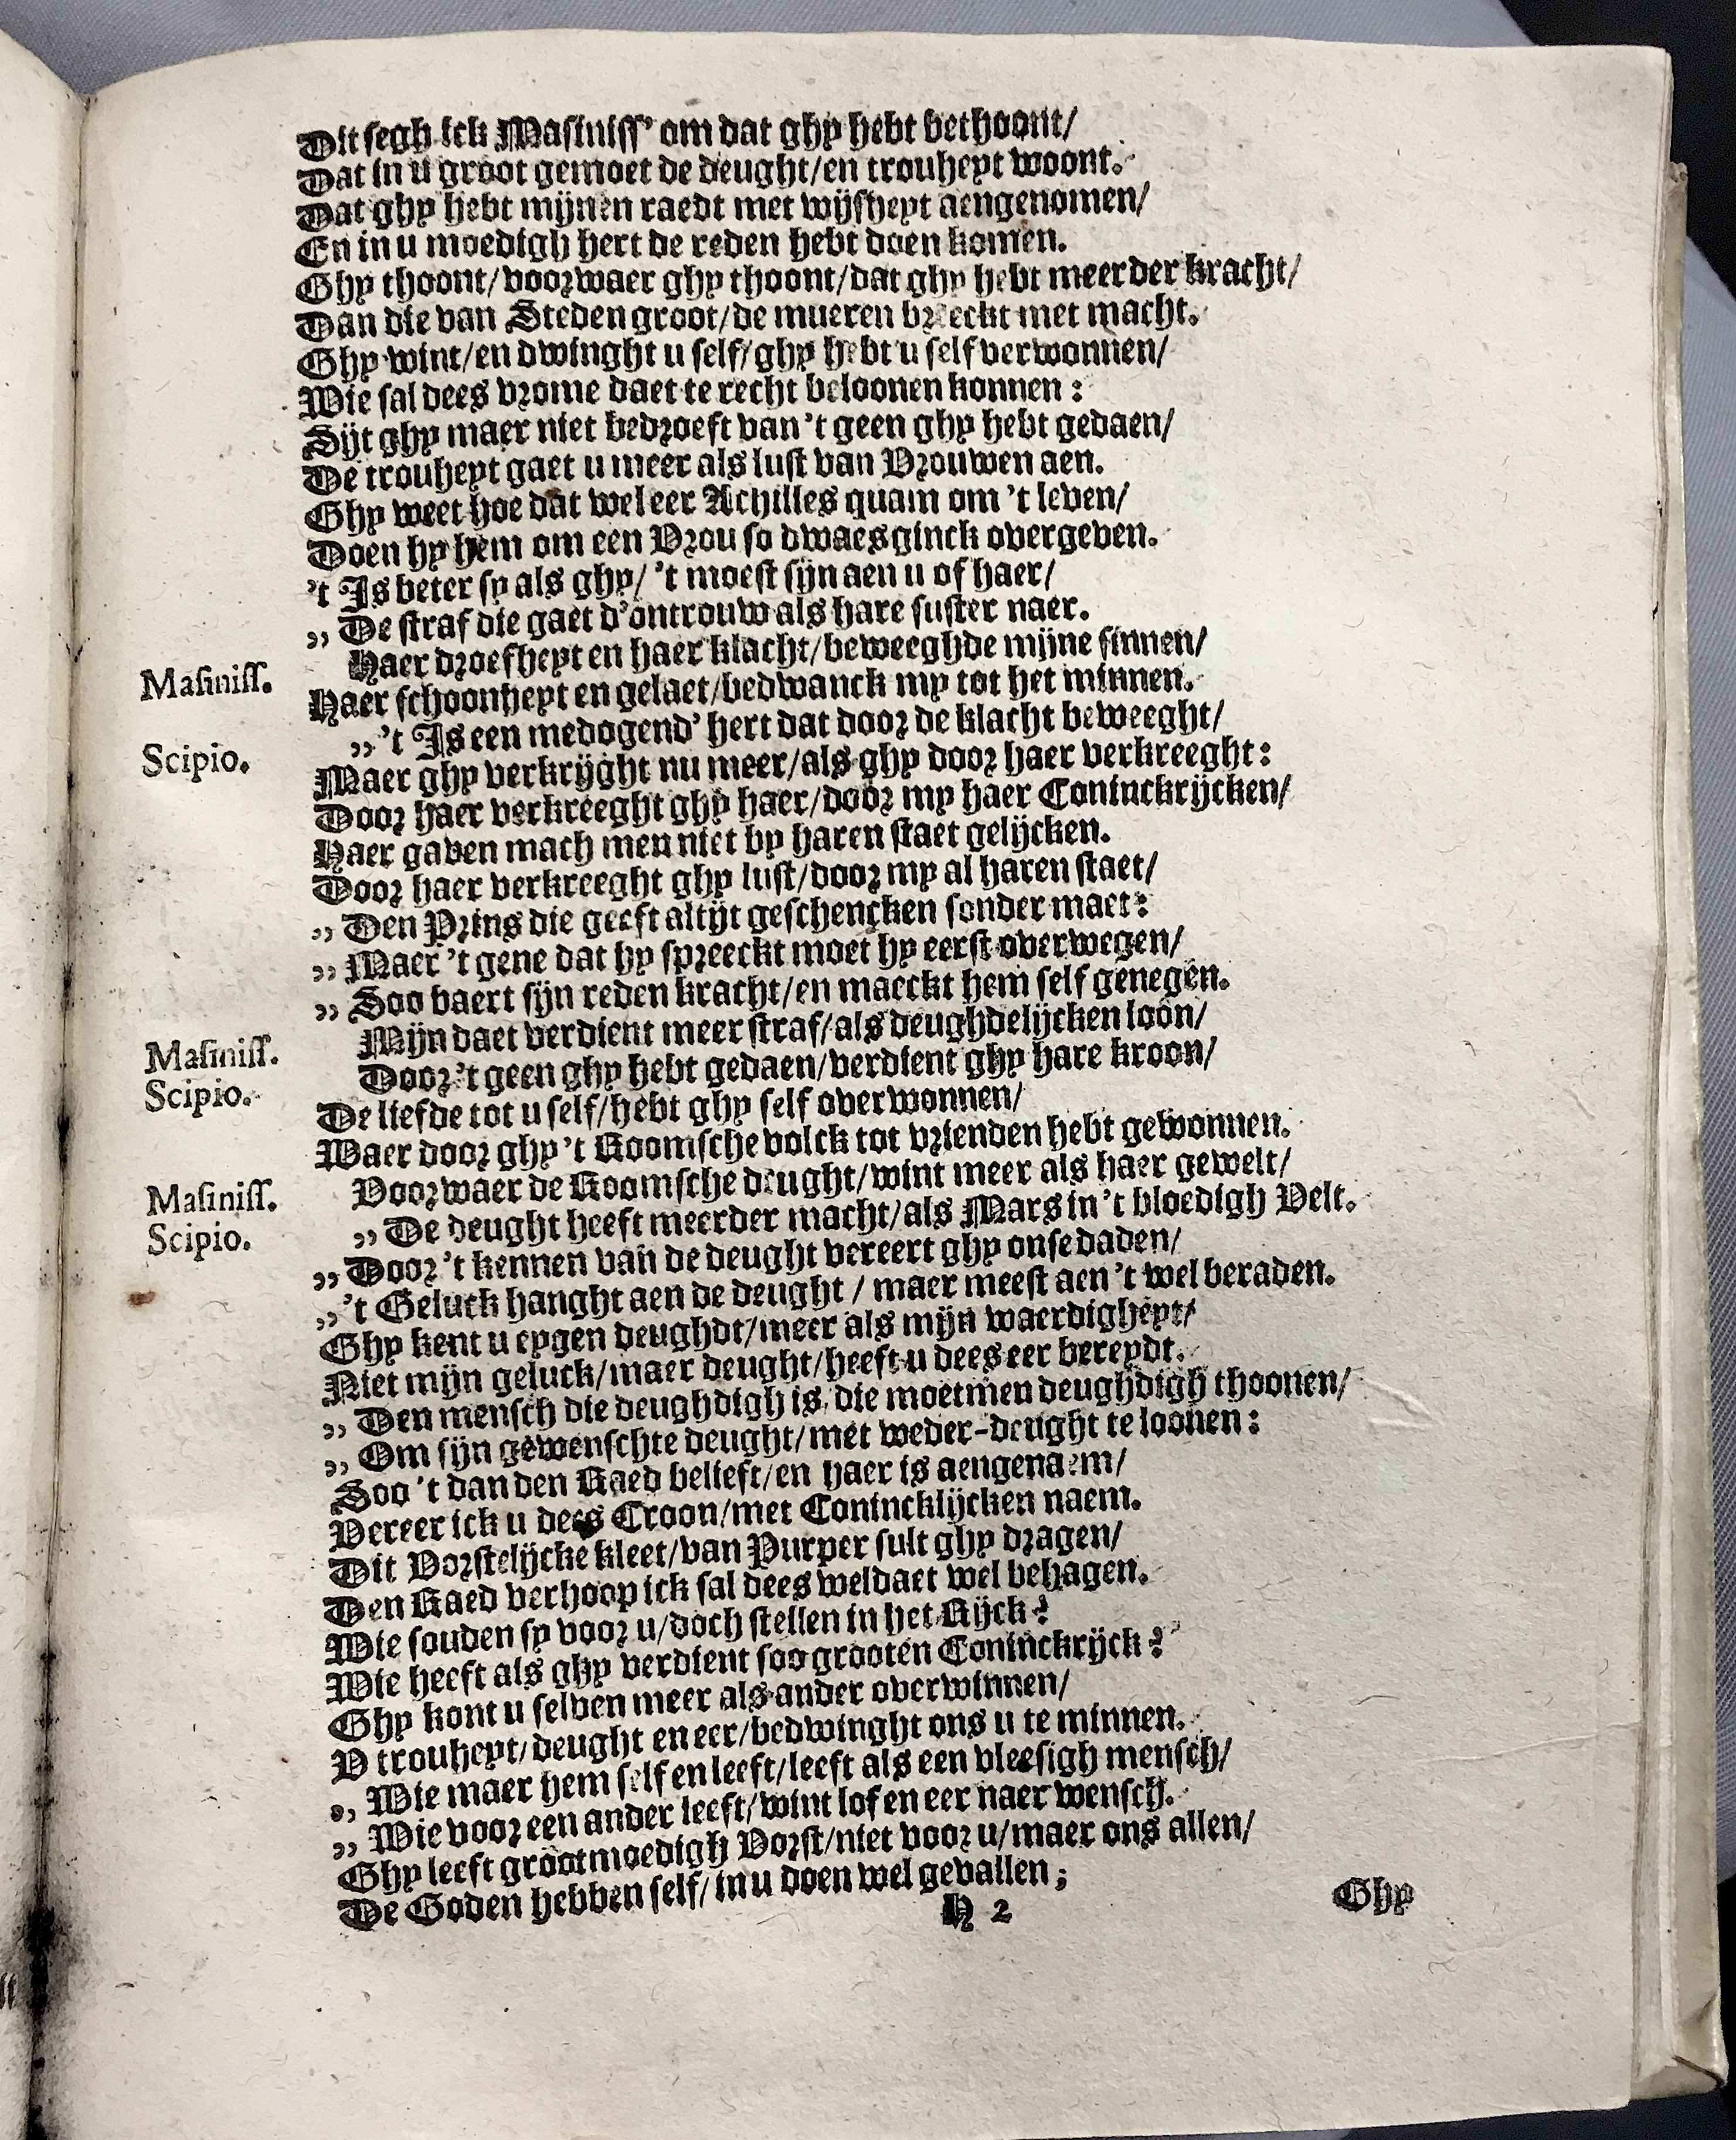 Dit segh ick Masiniss' om dat ghy hebt bethoont/
Dat in u groot gemoet de deught/en trouheyt woont.
Dat ghy hebt mijnen raedt met wijsheyt aengenomen/
En in u moedigh hert de reden hebt doen komen.
Ghy thoont/voorwaer ghy thoont/dat ghy hebt meerder kracht/
Dan die van Steden groot/de mueren breeckt met macht.
Ghy wint/en dwinght u self/ghy hebt u self verwonnen/
Wie sal dees vrome daet te recht beloonen konnen:
Sijt ghy maer niet bedroeft van 't geen ghy hebt gedaen/
De trouheyt gaet u meer als lust van Vrouwen aen.
Ghy weet hoe dat wel eer Achilles quam om 't leven/
Doen hy hem om een Vrou so dwaes ginck overgeven.
't Is beter sy als ghy/ 't moest sijn aen u of haer/
,, De straf die gaet d'ontrouw als hare suster naer.
Masiniss. Haer droefheyt en haer klacht/beweeghde mijne sinnen/
Haer schoonheyt en gelaet/bedwanck my tot het minnen.
Scipio. ,, 't Is een medogend' hert dat door de klacht beweeght/
Maer ghy verkrijght nu meer/als ghy door haer verkreeght:
Door haer verkreeght ghy haer/door my haer Coninckrijcken/
Haer gaven mach men niet by haren staet gelijcken.
Door haer verkreeght ghy lust/door my al haren staet/
,, Den Prins die geeft altijt geschencken sonder maet:
,, Maer 't gene dat hy spreeckt moet hy eerst overwegen/
,, Soo baert sijn reden kracht/en maeckt hem self genegen.
Masiniss. Mijn daet verdient meer straf/als deughdelijcken loon/
Scipio. Door 't geen ghy hebt gedaen/verdient ghy hare kroon/
De liefde tot u self/hebt ghy self overwonnen/
Waer door ghy 't Roomsche volck tot vrienden hebt gewonnen.
Masiniss. Voorwaer de Roomsche deught/wint meer als haer gewelt/
Scipio. ,, De deught heeft meerder macht/als Mars in 't bloedigh Velt.
,, Door 't kennen van de deught vereert ghy onse daden/
,, 't Geluck hanght aen de deught / maer meest aen 't wel beraden.
Ghy kent u eygen deughdt/meer als mijn waerdigheyt/
Niet mijn geluck/maer deught/heeft u dees eer bereydt.
,, Den mensch die deughdigh is, die moetmen deughdigh thoonen/
,, Om sijn gewenschte deught/met weder-deught te loonen:
Soo 't dan den Raed belieft/en haer is aengenaem/
Vereer ick u dees Croon/met Conincklijcken naem.
Dit Vorstelijcke kleet/van Purper sult ghy dragen/
Den Raed verhoop ick sal dees weldaet wel behagen.
Wie souden sy voor u/doch stellen in het Rijck?
Wie heeft als ghy verdient soo grooten Coninckrijck?
Ghy kont u selven meer als ander overwinnen/
V trouheyt/deught en eer/bedwinght ons u te minnen.
,, Wie maer hem self en leeft/leeft als een vleesigh mensch/
,, Wie voor een ander leeft/wint lof en eer naer wensch.
Ghy leeft grootmoedigh Vorst/niet voor u/maer ons allen/
De Goden hebben self/in u doen wel gevallen;
H 2 Ghy